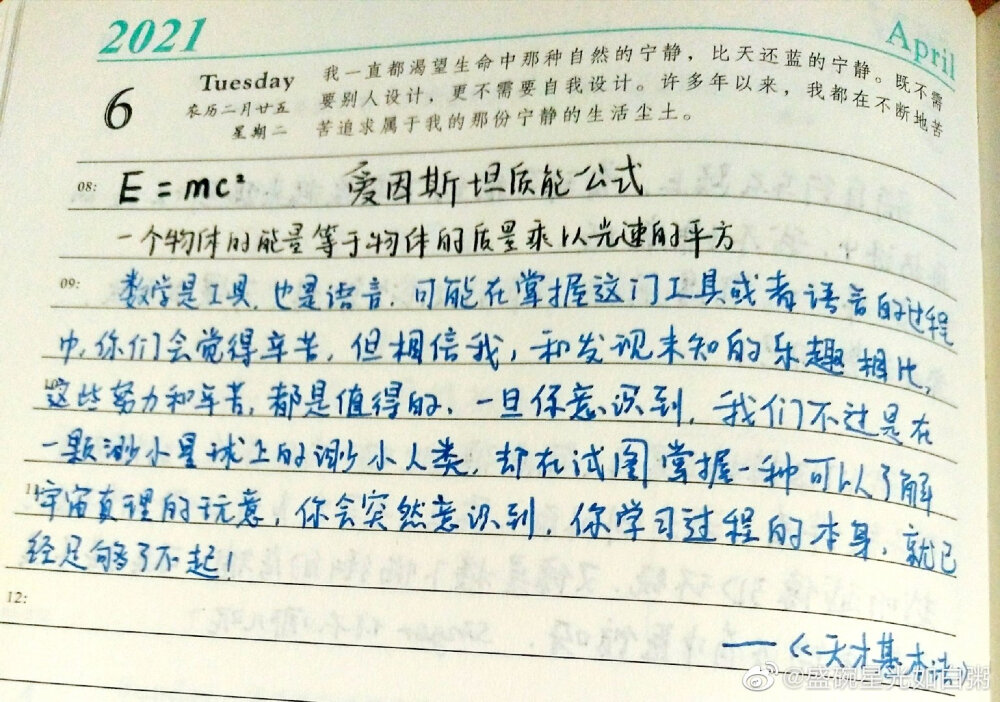 2021
April
6
Tuesday
农历二月廿五
星期二
我一直都渴望生命中那种自然的宁静，比天还蓝的宁静。既不需
要别人设计，更不需要自我设计。许多年以来，我都在不断地苦
苦追求属于我的那份宁静的生活尘土。
08: E=mc² 爱因斯坦质能公式
一个物体的能量等于物体的质量乘以光速的平方
09: 数学是工具，也是语言，可能在掌握这门工具或者语言的过程
中，你们会觉得辛苦，但相信我，和发现未知的乐趣相比，
这些努力和辛苦，都是值得的，一旦你意识到，我们不过是在
一颗渺小星球上的渺小人类，却在试图掌握一种可以了解
宇宙真理的玩意，你会突然意识到，你学习过程的本身，就已
经足够了不起！
12:
——《天才基本法》
@盛碗星光如白粥